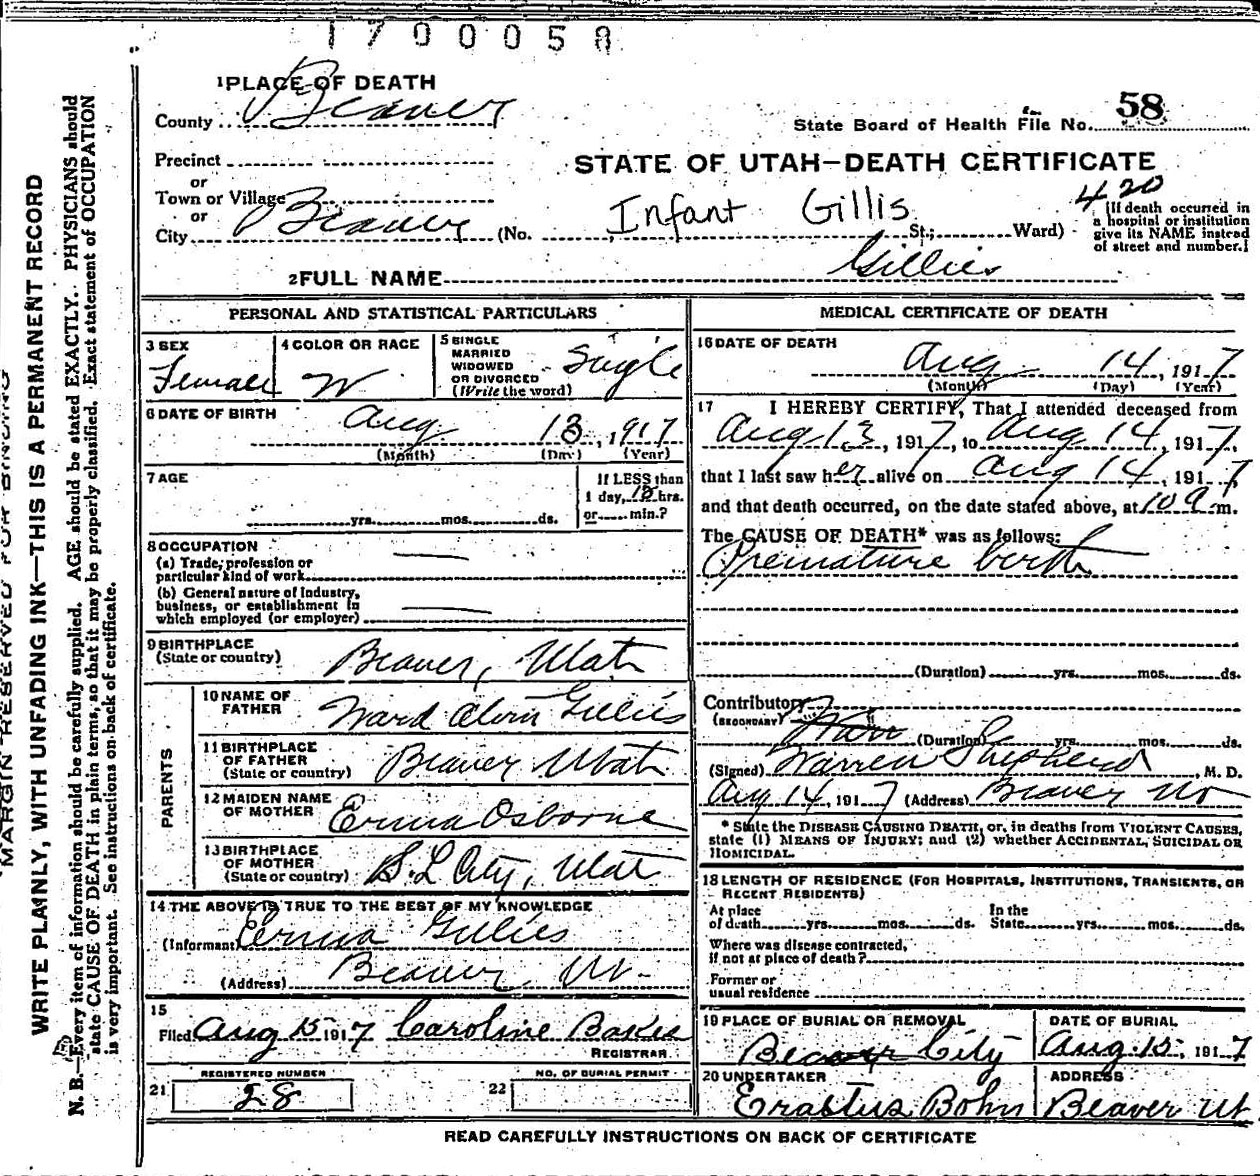 1700058
1 PLACE OF DEATH
County Beaver
58
State Board of Health File No.
Precinct
STATE OF UTAH—DEATH CERTIFICATE
or
Town or Village
or
City Beaver (No. Infant Gillis St.; Ward)
420
[If death occurred in
a hospital or institution
give its NAME instead
of street and number.]
2 FULL NAME Gillies
PERSONAL AND STATISTICAL PARTICULARS
3 SEX
Female
4 COLOR OR RACE
W
5 SINGLE
MARRIED
WIDOWED
OR DIVORCED
(Write the word)
Single
6 DATE OF BIRTH
Aug 13, 1917
(Month) (Day) (Year)
7 AGE
yrs. mos. ds.
If LESS than
1 day, 18 hrs.
or min.?
8 OCCUPATION
(a) Trade, profession or
particular kind of work
(b) General nature of Industry,
business, or establishment in
which employed (or employer)
9 BIRTHPLACE
(State or country)
Beaver, Utah
PARENTS
10 NAME OF
FATHER
Ward Alvin Gillies
11 BIRTHPLACE
OF FATHER
(State or country)
Beaver Utah
12 MAIDEN NAME
OF MOTHER
Erma Osborne
13 BIRTHPLACE
OF MOTHER
(State or country)
S.L. City, Utah
14 THE ABOVE IS TRUE TO THE BEST OF MY KNOWLEDGE
(Informant) Erma Gillies
(Address) Beaver Ut.
15
Filed Aug 15 1917 Caroline
REGISTRAR
REGISTERED NUMBER
21 28
NO. OF BURIAL PERMIT
22
MEDICAL CERTIFICATE OF DEATH
16 DATE OF DEATH
Aug 14, 1917
(Month) (Day) (Year)
17 I HEREBY CERTIFY, That I attended deceased from
Aug 13, 1917, to Aug 14, 1917,
that I last saw her alive on Aug 14, 1917,
and that death occurred, on the date stated above, at 10 a m.
The CAUSE OF DEATH* was as follows:
Premature birth
(Duration) yrs. mos. ds.
Contributory
(SECONDARY)
(Duration) yrs. mos. ds.
(Signed) Warren Shepherd, M. D.
Aug 14, 1917 (Address) Beaver Ut
* State the DISEASE CAUSING DEATH, or, in deaths from VIOLENT CAUSES,
state (1) MEANS OF INJURY; and (2) whether ACCIDENTAL, SUICIDAL OR
HOMICIDAL.
18 LENGTH OF RESIDENCE (FOR HOSPITALS, INSTITUTIONS, TRANSIENTS, OR
RECENT RESIDENTS)
At place
of death yrs. mos. ds.
In the
State yrs. mos. ds.
Where was disease contracted,
if not at place of death?
Former or
usual residence
19 PLACE OF BURIAL OR REMOVAL
Beaver City
DATE OF BURIAL
Aug. 15, 1917
20 UNDERTAKER
Erastus Bohn
ADDRESS
Beaver Ut.
READ CAREFULLY INSTRUCTIONS ON BACK OF CERTIFICATE
MARGIN RESERVED FOR BINDING
WRITE PLAINLY, WITH UNFADING INK—THIS IS A PERMANENT RECORD
N. B.—Every item of information should be carefully supplied. AGE should be stated EXACTLY. PHYSICIANS should
state CAUSE OF DEATH in plain terms, so that it may be properly classified. Exact statement of OCCUPATION
is very important. See instructions on back of certificate.